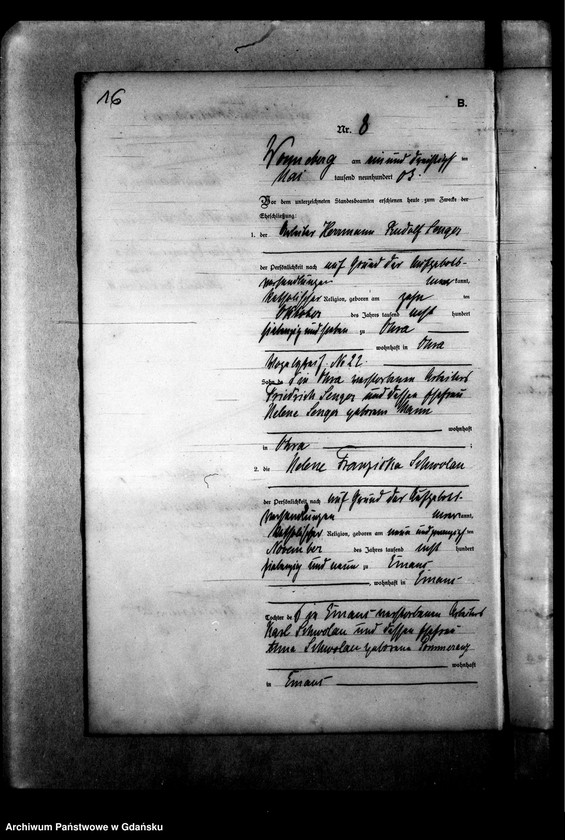 16
B.
Nr. 8
Wonneberg am ein und dreißigsten
Mai tausend neunhundert 03.
Vor dem unterzeichneten Standesbeamten erschienen heute zum Zwecke der
Eheschließung:
1. der Arbeiter Herrmann Rudolf Senger
der Persönlichkeit nach auf Grund der Aufgebots-
verhandlungen kannt,
katholischer Religion, geboren am zehn ten
Oktober des Jahres tausend acht hundert
siebenzig und sieben zu Ohra
wohnhaft in Ohra
No 22.
Sohn des in Ohra verstorbenen Arbeiters
Friedrich Senger und dessen Ehefrau
Helene Senger geborene Mann
wohnhaft
in Ohra ;
2. die Helene Franziska Schwolau
der Persönlichkeit nach auf Grund der Aufgebots-
verhandlungen kannt,
katholischer Religion, geboren am neun und zwanzigsten
November des Jahres tausend acht hundert
siebenzig und neun zu Emaus
, wohnhaft in Emaus
Tochter des zu Emaus verstorbenen Arbeiters
Karl Schwolau und dessen Ehefrau
Anna Schwolau geborene Pommerenz
wohnhaft
in Emaus
Archiwum Państwowe w Gdańsku